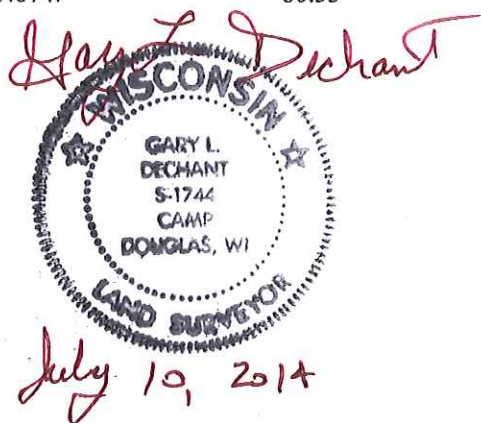 Gary L. Dechant
WISCONSIN
GARY L.
DECHANT
S-1744
CAMP
DOUGLAS, WI
LAND SURVEYOR
July 10, 2014